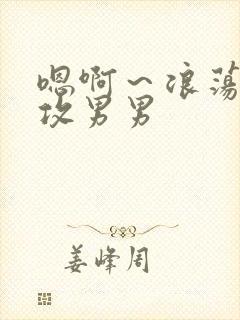 嗯啊~浪荡
攻男男
姜峰周